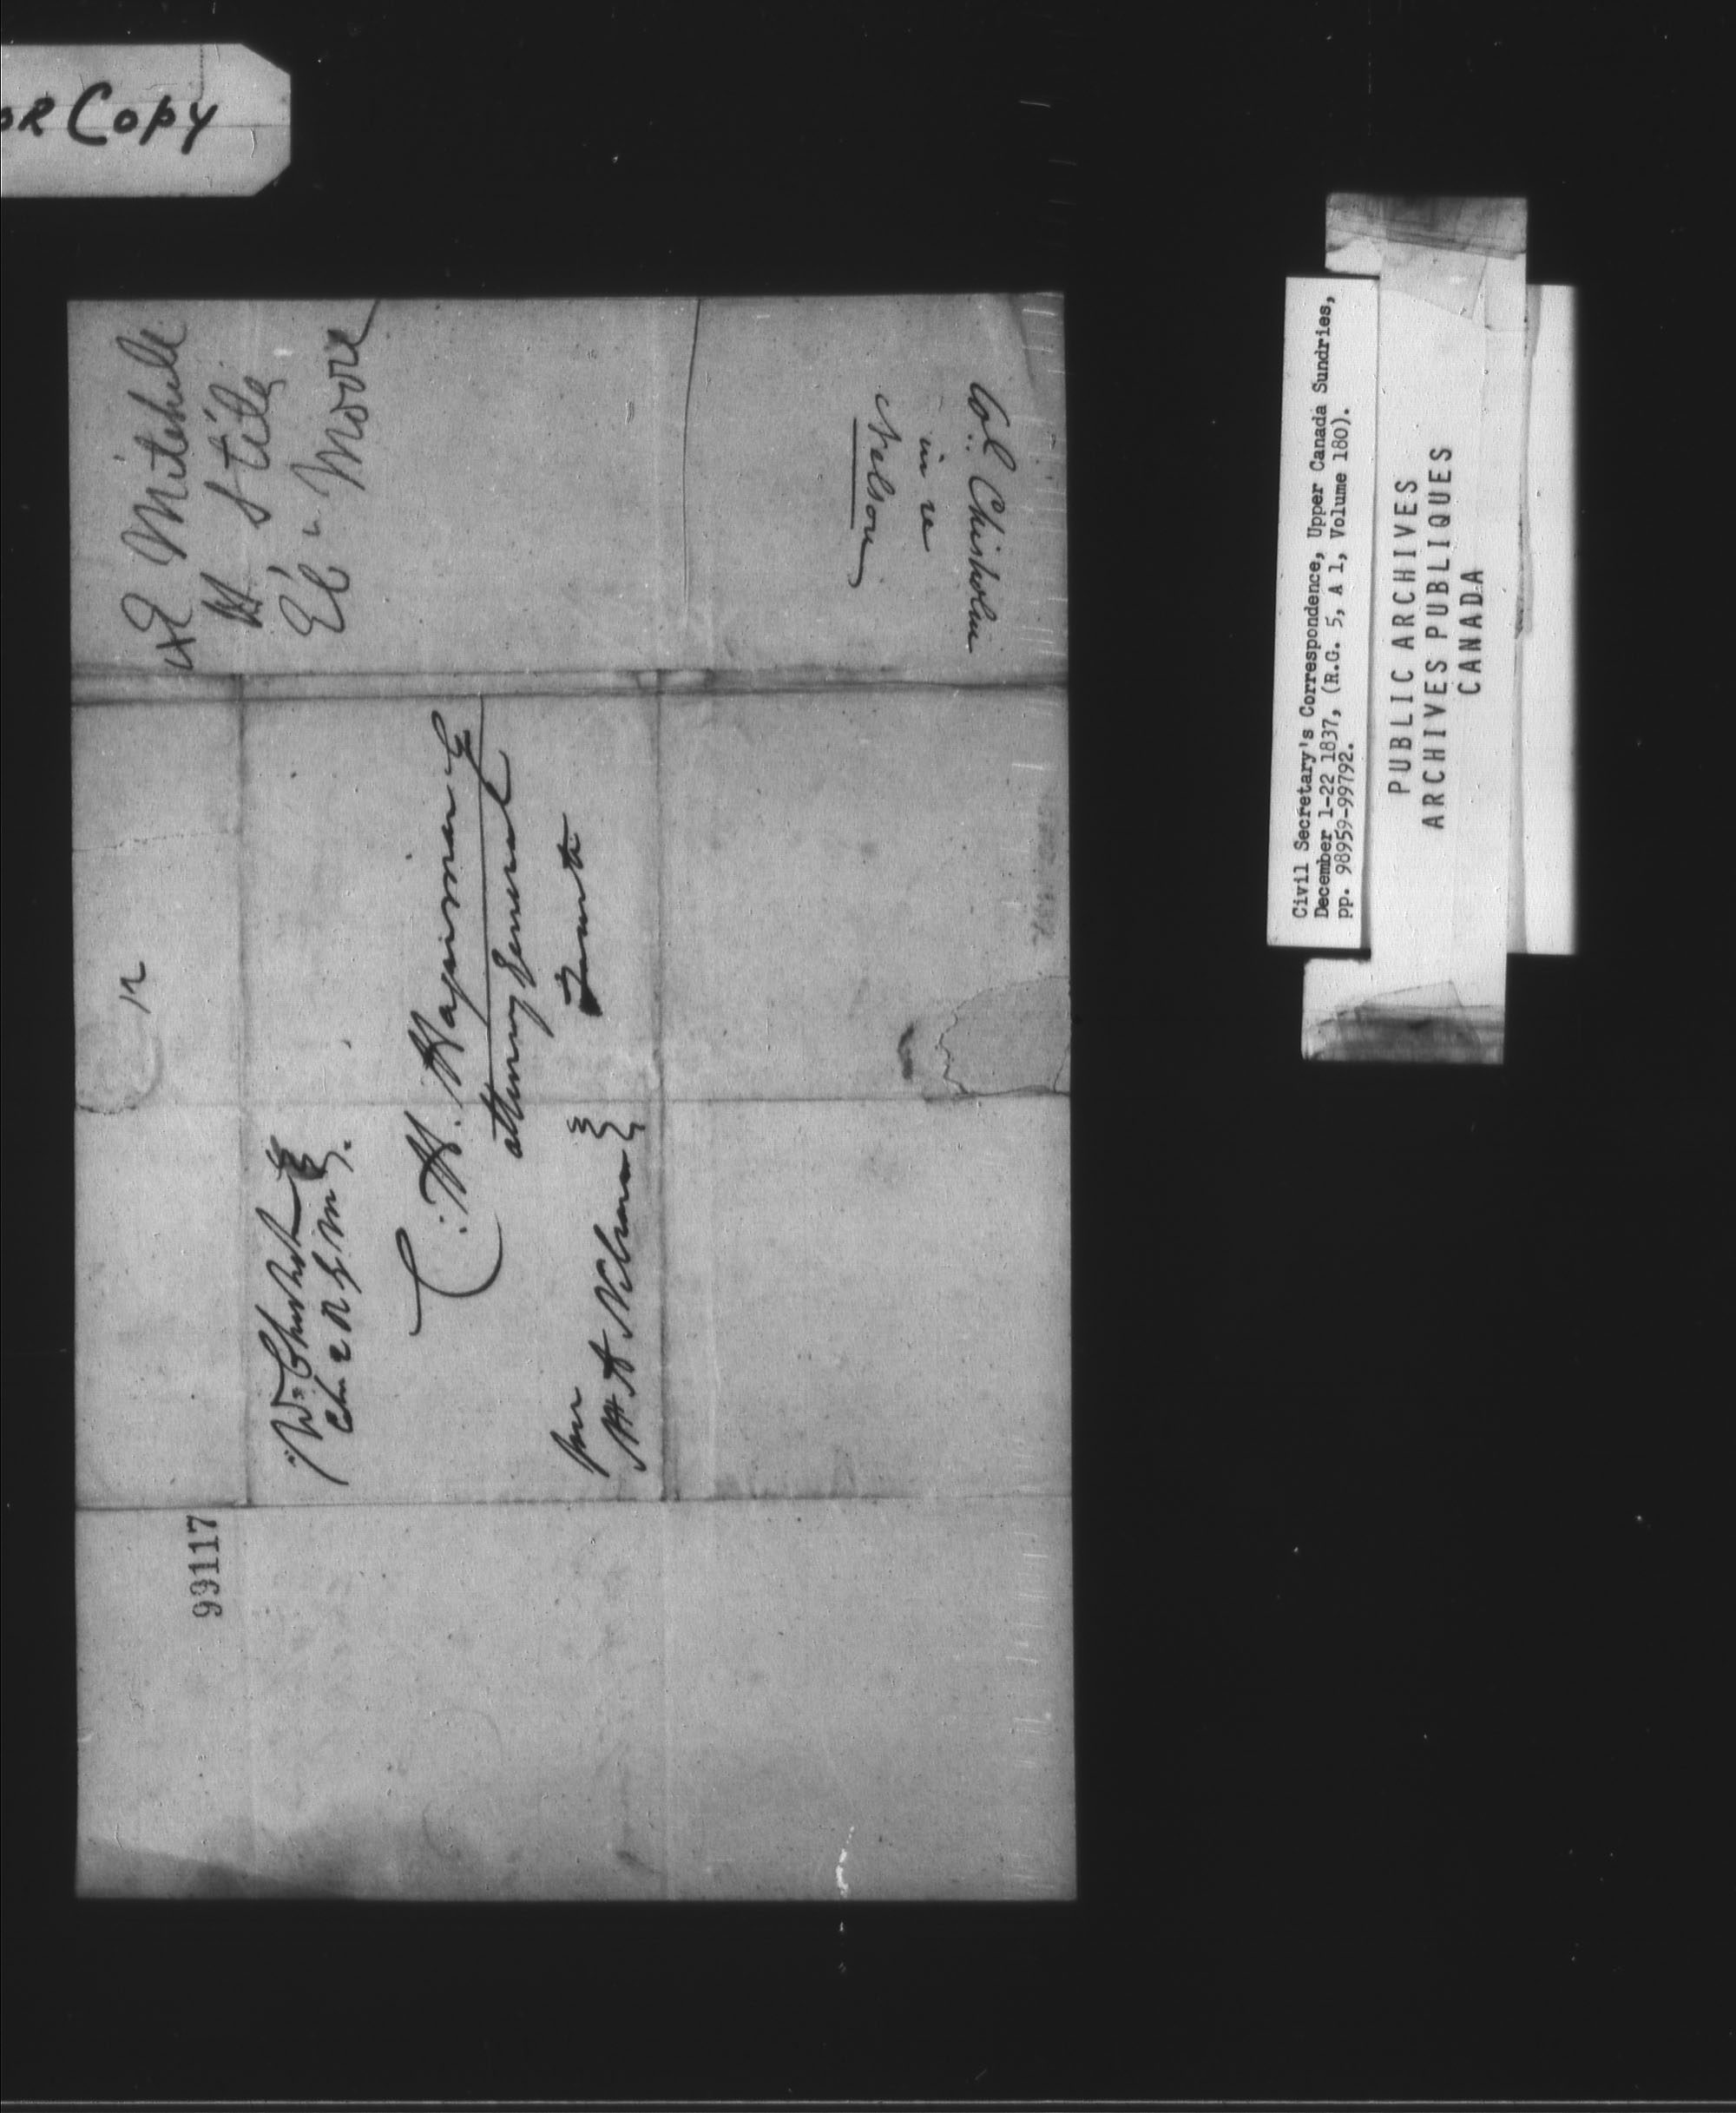 OR Copy
Mitchell
H Stile
Eb. Moore
Col. Chisholm
in re
Nelson
12
Wm Chisholm
Col 2 R G M
C. H. Hagerman Esq
Attorney General
Toronto
per
H A Nelson
99117
Civil Secretary's Correspondence, Upper Canada Sundries,
December 1-22 1837, (R.G. 5, A 1, Volume 180).
pp. 98959-99792.
PUBLIC ARCHIVES
ARCHIVES PUBLIQUES
CANADA